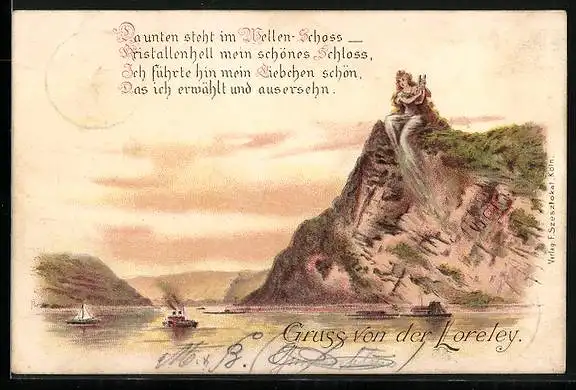 Da unten steht im Wellen-Schoss —
Kristallenhell mein schönes Schloss,
Ich führte hin mein Liebchen schön,
Das ich erwählt und ausersehn.
Verlag F. Szesztokat, Köln.
Gruss von der Loreley.